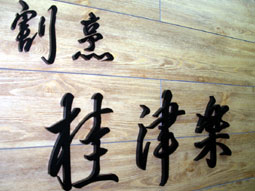 割烹
桂津楽